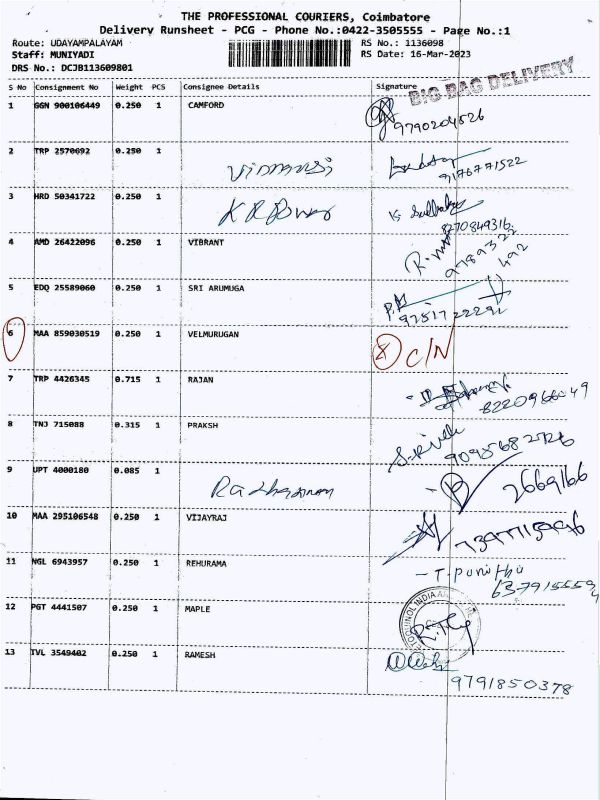 THE PROFESSIONAL COURIERS, Coimbatore
Delivery Runsheet - PCG - Phone No.:0422-3505555 - Page No.:1
Route: UDAYAMPALAYAM RS No.: 1136098
Staff: MUNIYADI RS Date: 16-Mar-2023
DRS No.: DCJB113609801
BIG BAG DELIVERY
S No Consignment No Weight PCS Consignee Details Signature
1 GGN 900106449 0.250 1 CAMFORD
9790204526
2 TRP 2570692 0.250 1
9176771522
3 HRD 50341722 0.250 1
4 AMD 26422096 0.250 1 VIBRANT
5 EDQ 25589060 0.250 1 SRI ARUMUGA
6 MAA 859030519 0.250 1 VELMURUGAN C/N
7 TRP 4426345 0.715 1 RAJAN
8220966049
8 TNJ 715088 0.315 1 PRAKSH
9 UPT 4000180 0.085 1
2669166
10 MAA 295106548 0.250 1 VIJAYRAJ
11 NGL 6943957 0.250 1 REHURAMA
12 PGT 4441507 0.250 1 MAPLE
13 TVL 3549402 0.250 1 RAMESH
9791850378